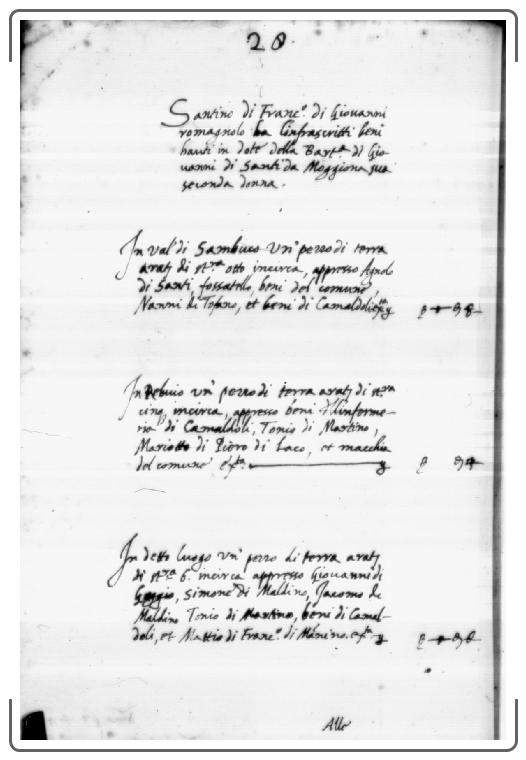 28.
Santino di Franc.º di Giovanni
romagnolo ha l'infrascritti beni
hauti in dote della Bart.ª di Gio-
vanni di Santi da Moggiona sua
seconda donna.
In val' di Sambuco un' pezzo di terra
arat.ª di st.ra otto incirca, appresso Agnolo
di Santi, fossatello, beni del comune,
Nanni di Tofano, et beni di Camaldoli
In un' pezzo di terra arat.ª di st.ra
cinq. incirca, appresso beni dell'infirme-
ria di Camaldoli, Tonio di Martino,
Mariotto di Piero di Laco, et macchia
del comune etc.ª
In detto luogo un' pezzo di terra arat.ª
di st.ra 6. incirca appresso Giovanni di
Goggio, Simone di Maldino, Jacomo di
Maldino Tonio di Martino, beni di Camal-
doli, et Mattio di Franc.º di Manino. etc.ª
Allo